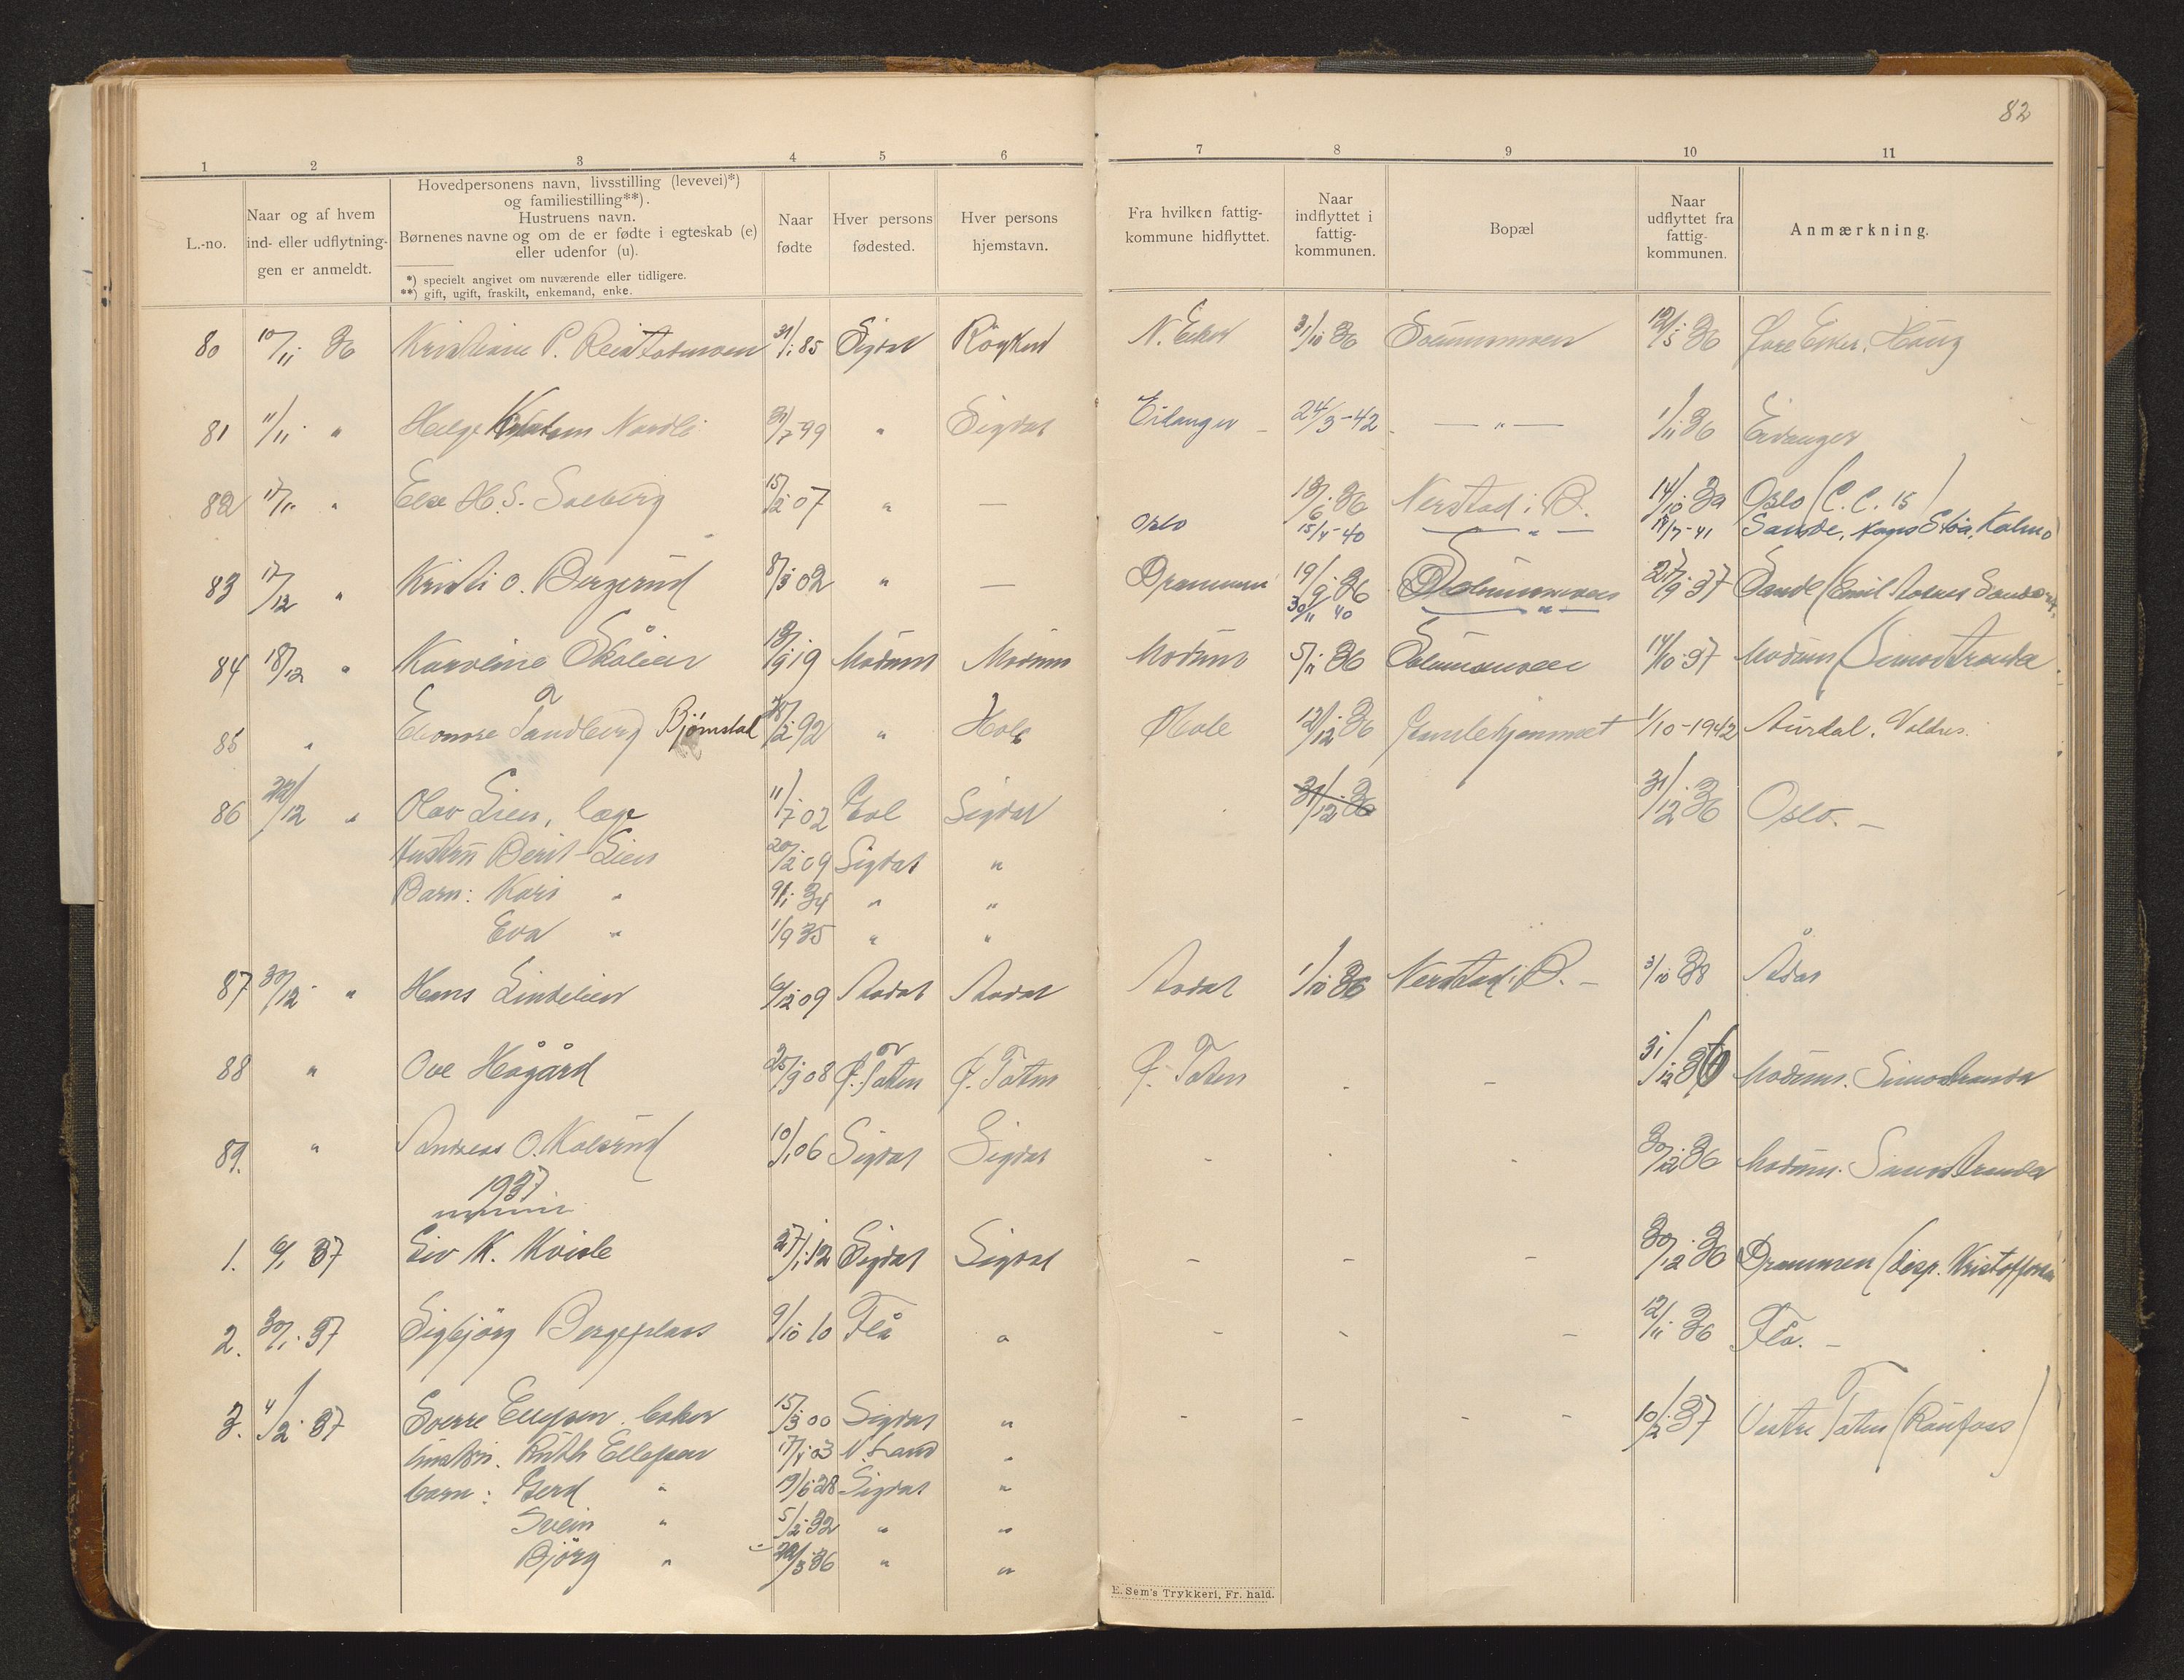 82
1 2 3 4 5 6 7 8 9 10 11
L.-no.
Naar og af hvem
ind- eller udflytnin-
gen er anmeldt.
Hovedpersonens navn, livsstilling (levevei)*)
og familiestilling**).
Hustruens navn.
Børnenes navne og om de er fødte i egteskab (e)
eller udenfor (u).
*) specielt angivet om nuværende eller tidligere.
**) gift, ugift, fraskilt, enkemand, enke.
Naar
fødte
Hver persons
fødested.
Hver persons
hjemstavn.
Fra hvilken fattig-
kommune hidflyttet.
Naar
indflyttet i
fattig-
kommunen.
Bopæl
Naar
udflyttet fra
fattig-
kommunen.
Anmærkning.
80 10/11 36 Kristiane P. 31/1 85 Sigdal Röyken N. Eiker 31/10 36 Solumsmoen 12/5 36 Øvre Eiker, Haug
81 11/11 " Helge Nordli 31/7-99 " Sigdal Eidanger - 24/3-42 — " — 1/11 36 Eidanger
82 17/11 " Else H. S. Solberg 15/2 07 " — 18/6 36 Nerstad i B. 14/10 39 Oslo (C. C. 15)
Oslo 15/4-40 — " — 14/7-41 Sande,
83 17/12 " Kristi O. Bergerud 8/3 02 " — Drammen 19/9 36 Solumsmoen 27/9 37 Sande (Emil
30/11 40 — " —
84 18/12 " Karoline Skålien 18/9 19 Modum Modum Modum 5/11 36 Solumsmoen 14/10 37 Modum (Simostranda
85 " Eleonore Sandberg Bjørnstad 28/2 92 " Hole Hole 12/12 36 Gamlehjemmet 1/10-1942 Aurdal, Valdres.
86 22/12 " Olav Lien, læge 11/7 02 Gol Sigdal 31/12 36 31/12 36 Oslo. -
Hustru Berit Lien 20/2 09 Sigdal "
Barn: Kari " 9/1 34 " "
Eva " 1/9 35 " "
87 30/12 " Hans Lindelien 6/12 09 Aadal Aadal Aadal 1/10 36 Nerstad i B. - 3/10 38 Ådal
88 " Ove Hågård 25/9 08 Ø. Toten Ø. Toten Ø. Toten - - 31/12 36 Modum. Simostranda
89. " Andreas O. Kolsrud 10/1 06 Sigdal Sigdal - - - 30/12 36 Modum. Simostranda
1937
1. 6/1 37 Liv K. Kvisle 27/1 12 Sigdal Sigdal - - - 30/12 36 Drammen (disp. Kristoffersen
2. 30/1 37 Sigbjörg Bergeplass 9/10 10 Flå " - - - 12/11 36 Flå. -
3. 4/2 37 Sverre Ellefsen baker 15/3 00 Sigdal " - - - - 10/2 37 Vestre Toten (Raufoss)
hustru. Ruth Ellefsen 17/4 03 N. Land "
barn: Gerd " 19/6 28 Sigdal "
Svein " 5/2 32 " "
Björg " 22/3 36 " "
E. Sem's Trykkeri, Fr. hald.